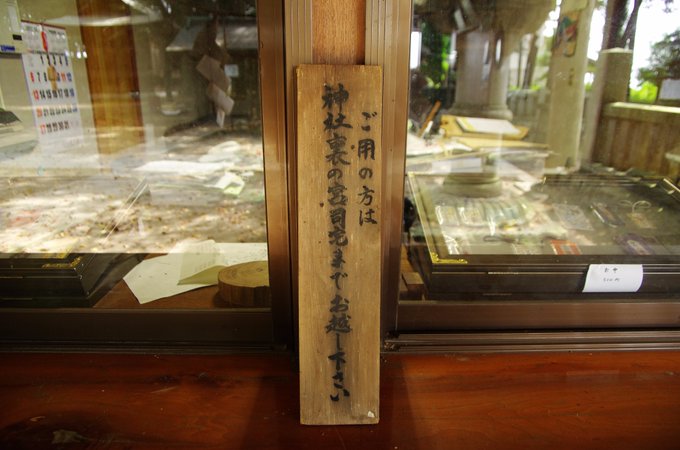 ご用の方は
神社裏の宮司宅までお越し下さい